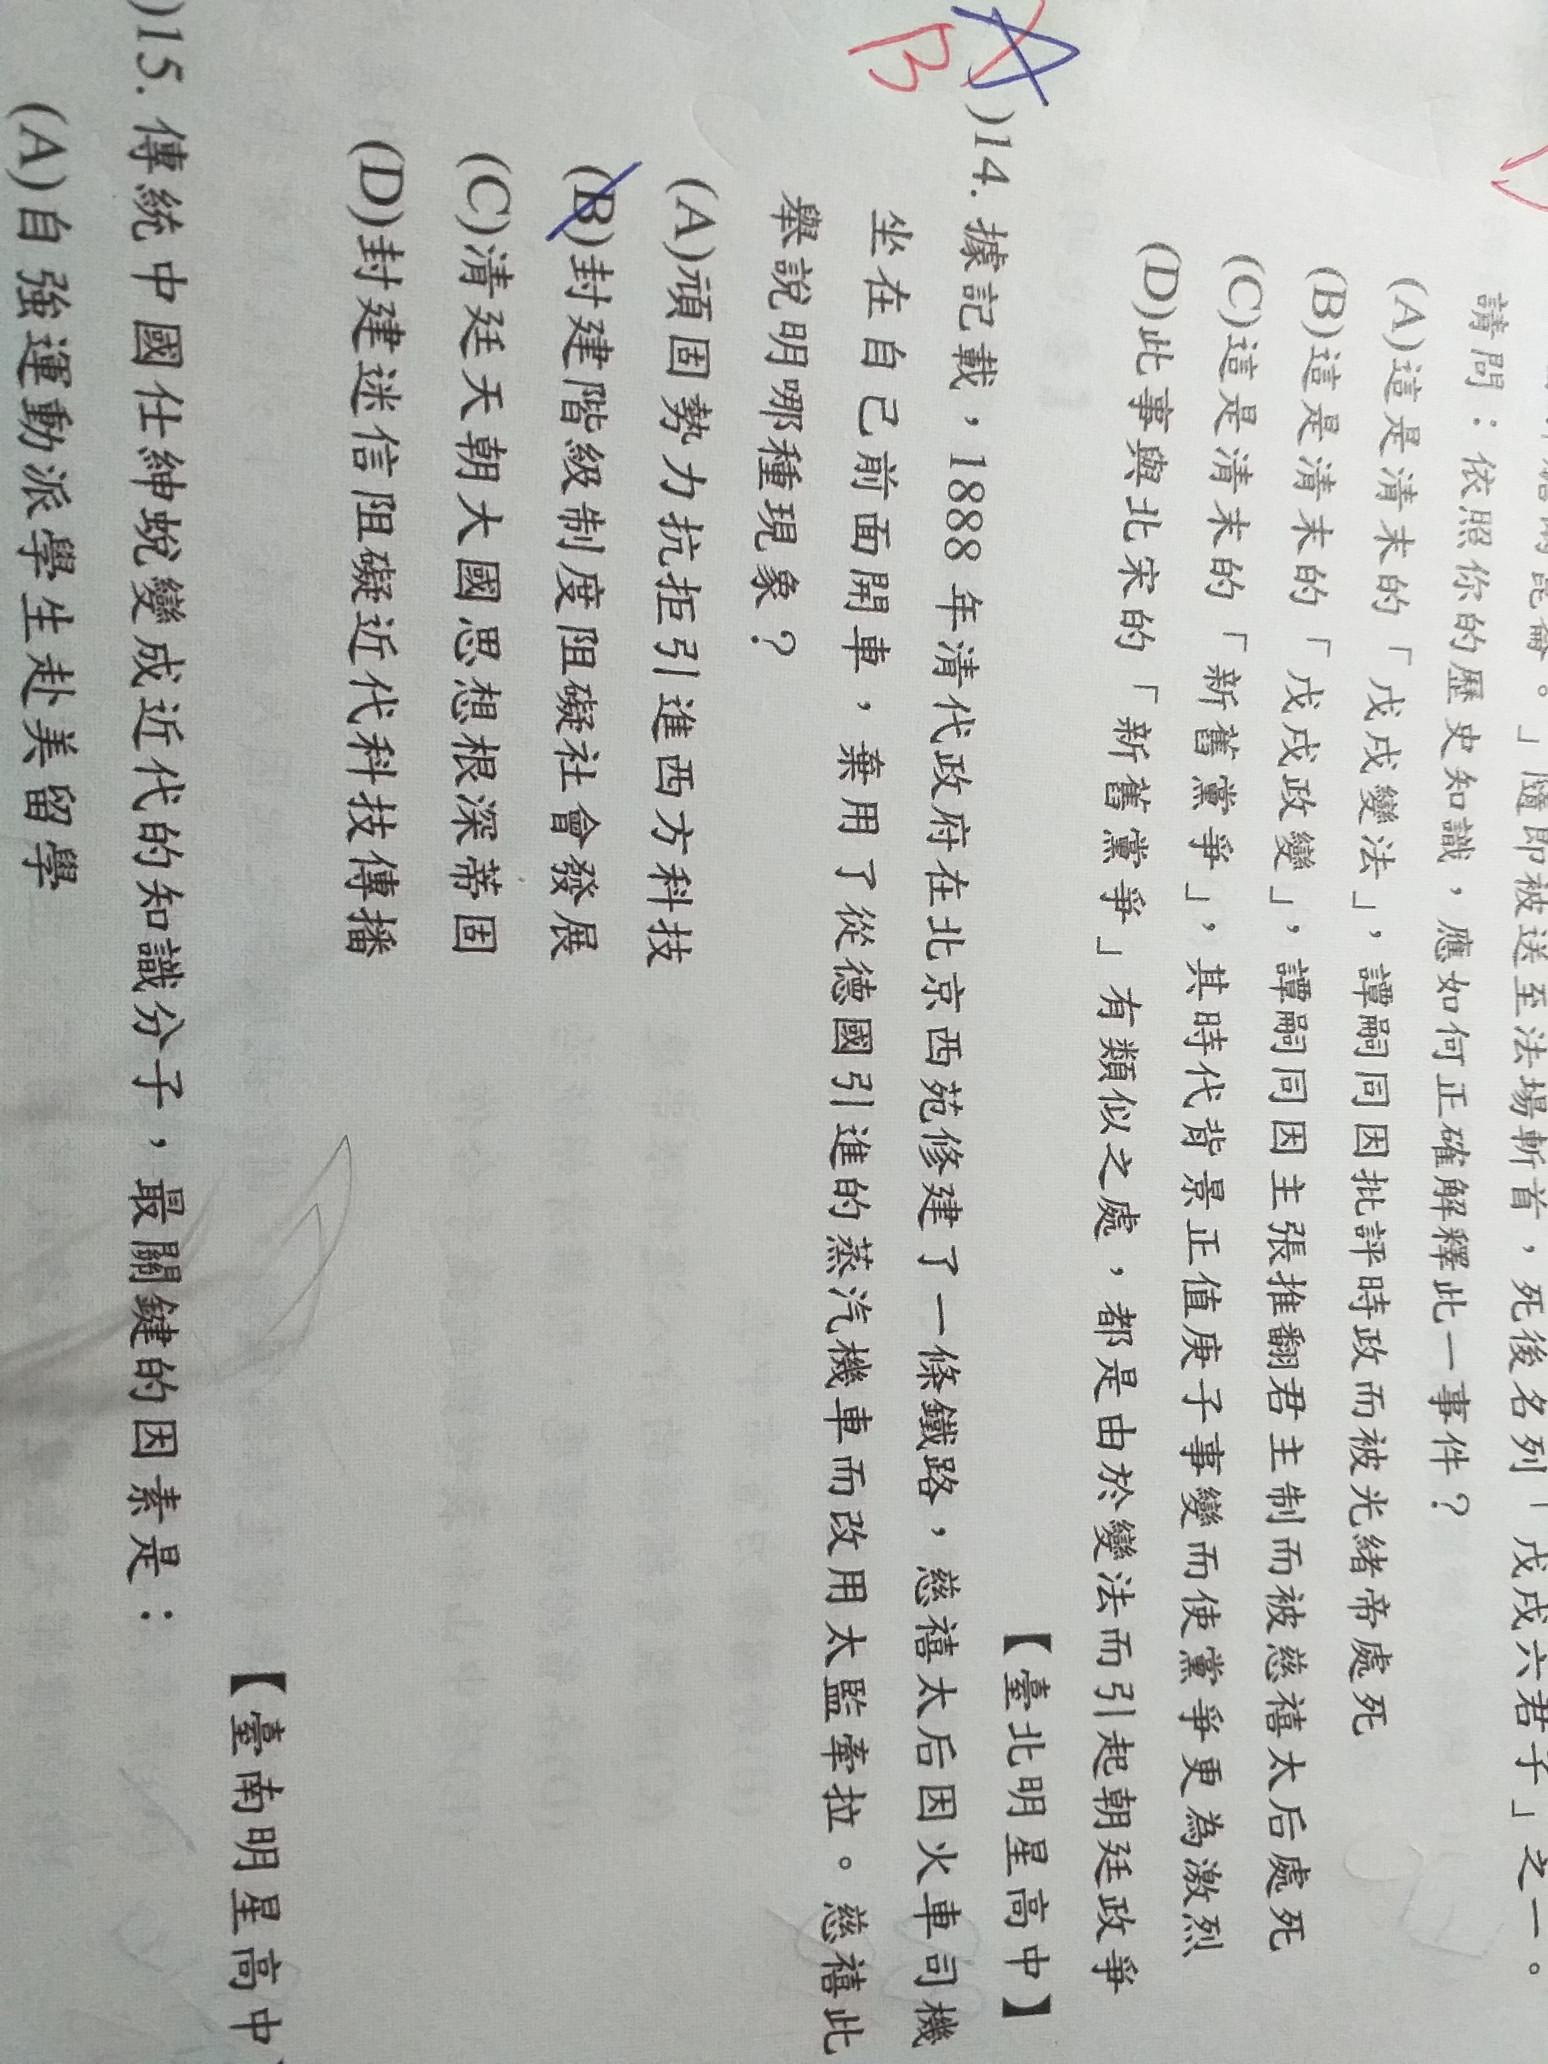 隨即被送至法場斬首，死後名列「戊戌六君子」之一。
請問：依照你的歷史知識，應如何正確解釋此一事件？
(A)這是清末的「戊戌變法」，譚嗣同因批評時政而被光緒帝處死
(B)這是清末的「戊戌政變」，譚嗣同因主張推翻君主制而被慈禧太后處死
(C)這是清末的「新舊黨爭」，其時代背景正值庚子事變而使黨爭更為激烈
(D)此事與北宋的「新舊黨爭」有類似之處，都是由於變法而引起朝廷政爭
【臺北明星高中】
A
B
)14. 據記載，1888 年清代政府在北京西苑修建了一條鐵路，慈禧太后因火車司機
坐在自己前面開車，棄用了從德國引進的蒸汽機車而改用太監牽拉。慈禧此
舉說明哪種現象？
(A)頑固勢力抗拒引進西方科技
(B)封建階級制度阻礙社會發展
(C)清廷天朝大國思想根深蒂固
(D)封建迷信阻礙近代科技傳播
【臺南明星高中
)15. 傳統中國仕紳蛻變成近代的知識分子，最關鍵的因素是：
(A)自強運動派學生赴美留學